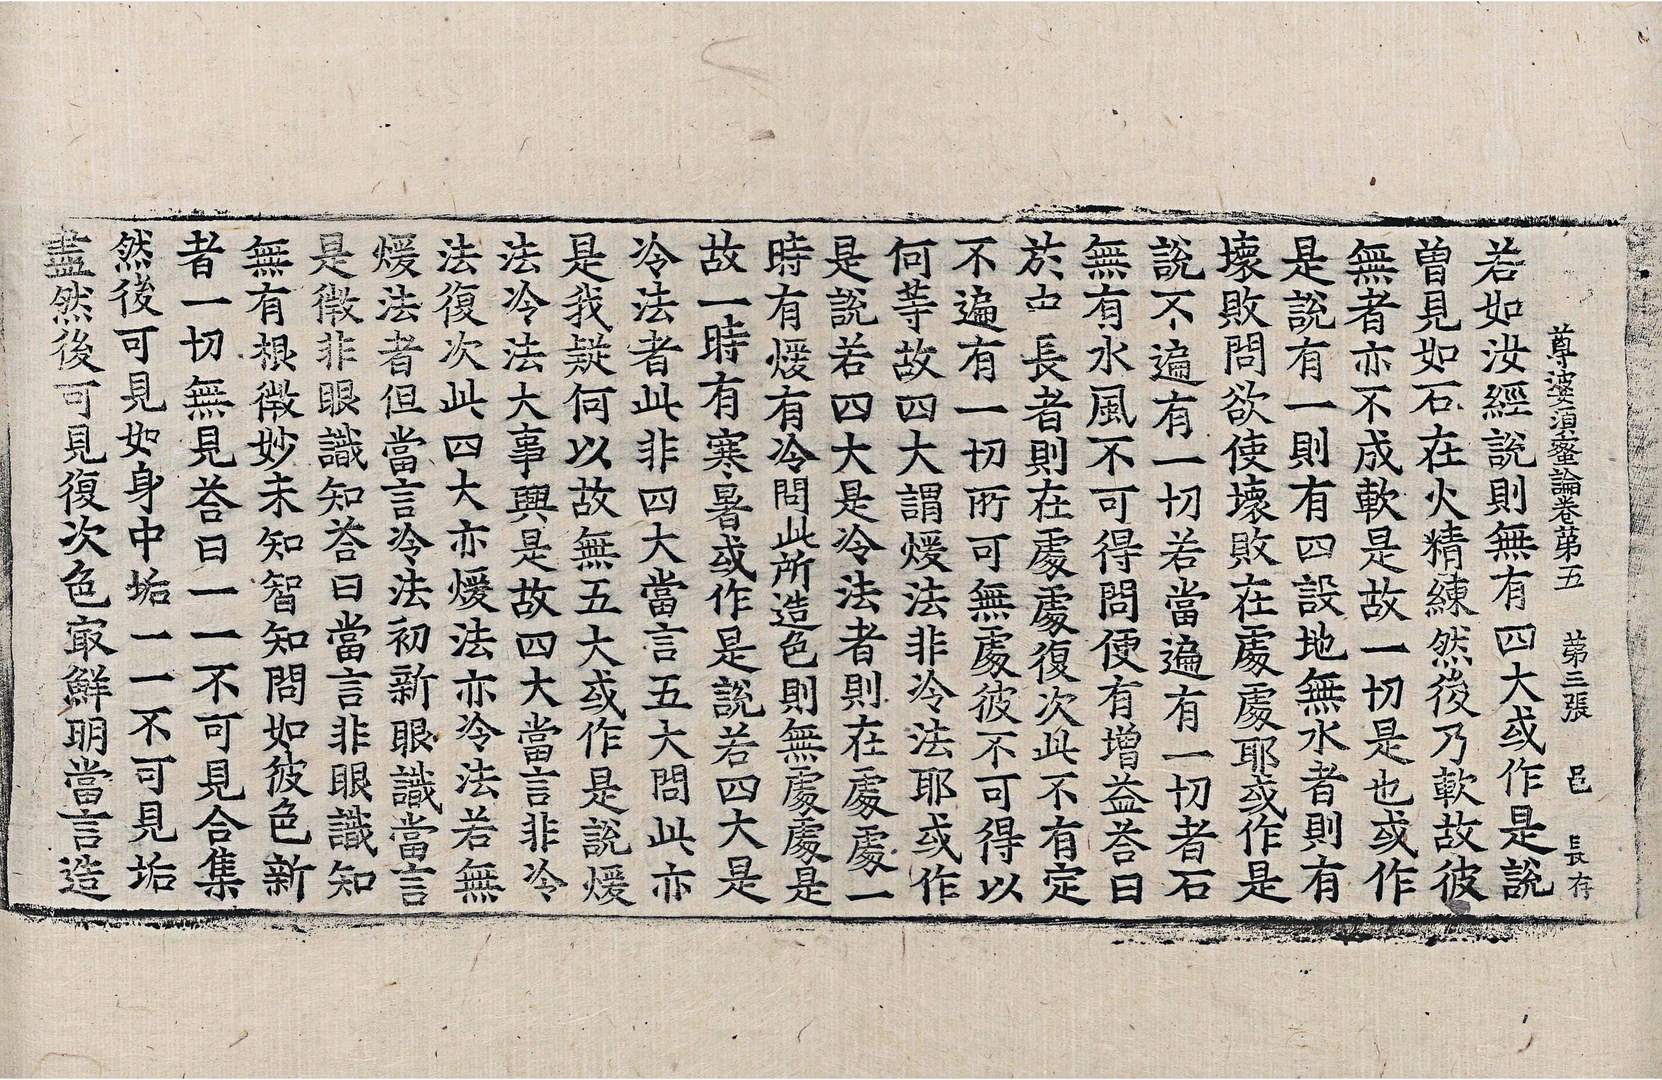 尊婆須蜜論卷苐五　苐三張　邑　長存
若如汝經說則無有四大或作是說
曽見如石在火精練然後乃軟故彼
無者亦不成軟是故一切是也或作
是說有一則有四設地無水者則有
壞敗問欲使壞敗在處處耶或作是
說不遍有一切若當遍有一切者石
無有水風不可得問便有增益荅曰
於中長者則在處處復次此不有定
不遍有一切所可無處彼不可得以
何等故四大謂煖法非冷法耶或作
是說若四大是冷法者則在處處一
時有煖有冷問此所造色則無處處是
故一時有寒暑或作是說若四大是
冷法者此非四大當言五大問此亦
是我疑何以故無五大或作是說煖
法冷法大事興是故四大當言非冷
法復次此四大亦煖法亦冷法若無
煖法者但當言冷法初新眼識當言
是徵非眼識知荅曰當言非眼識知
無有根徵妙未知智知問如彼色新
者一切無見荅曰一一不可見合集
然後可見如身中垢一一不可見垢
盡然後可見復次色㝡鮮明當言造